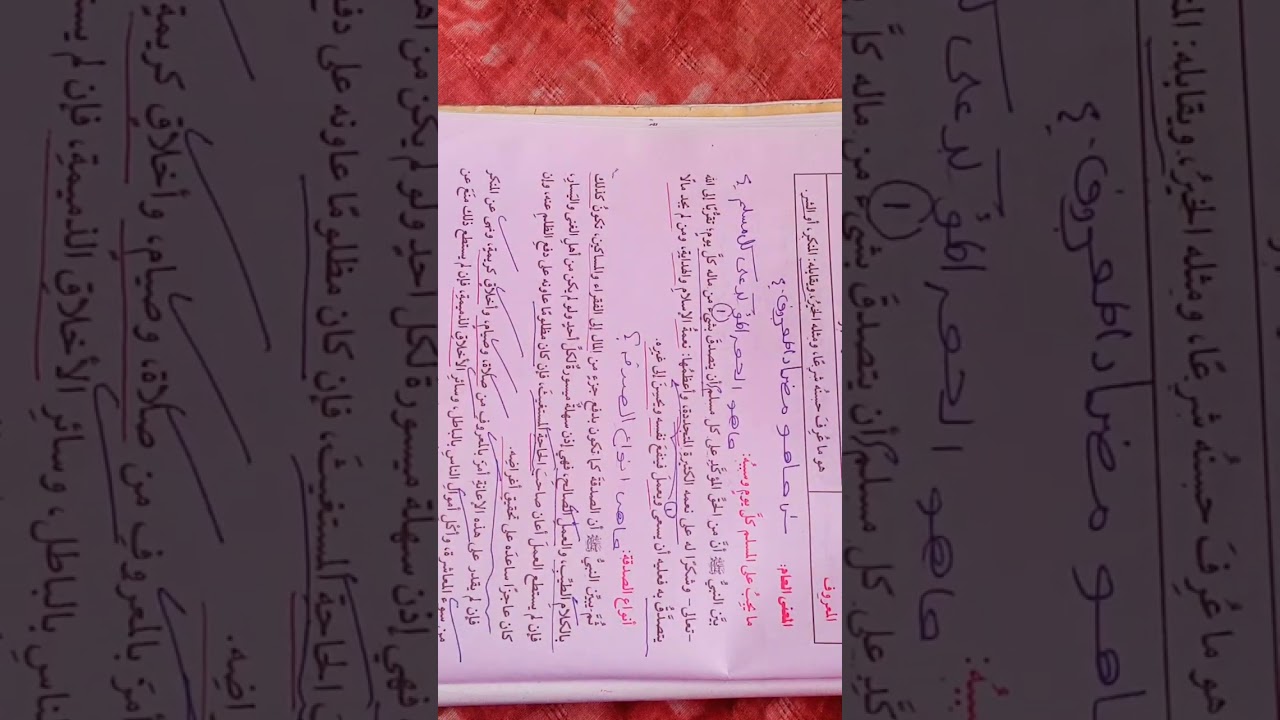 المعروف
هو ما عُرِفَ حسنُه شرعًا، ومثله الخيرُ، ويقابله: المنكر، أو الشر.
س/ ماهو مضاد المعروف ؟
المعنى العام:
ما يجبُ على المسلم كلَّ يومٍ وسببُه: ماهو الحق المؤكد على المسلم ؟
بيَّن النبيُّ ﷺ أنَّ من الحقِّ المؤكَّدِ على كل مسلمٍ أن يتصدقَ بشيءٍ من ماله كلَّ يوم؛ تقرُّبًا إلى الله
-تعالى- وشكرًا له على نعمه الكثيرة المتجددة، وأعظمُها: نعمةُ الإسلام والهداية، ومن لم يجد مالًا
يتصدَّقُ به فعليه أن يسعى ويعملَ فينفعَ نفسه ويحسنَ إلى غيره.
أنواع الصدقة: ماهي انواع الصدقه ؟
ثمَّ بيَّن النبيُّ ﷺ أن الصدقةَ كما تكونُ بدفعِ جزءٍ من المال إلى الفقراء والمساكين، تكونُ كذلك
بالكلام الطيِّب، والعملِ الصالحِ، فهي إذن سهلةٌ ميسورةٌ لكلِّ أحدٍ ولو لم يكن من أهلِ الغنى واليَسَارِ،
فإن لم يستطع العملَ أعان صاحبَ الحاجة المستغيثَ، فإن كان مظلومًا عاونه على دفعِ الظلمِ عنه، وإن
كان عاجزًا ساعدَه على تحقيقِ أغراضِه.
فإن لم يقدر على هذه الإعانة أمرَ بالمعروفِ من صلاة، وصيام، وأخلاقٍ كريمةٍ، ونهى عن المنكر
من سوء المعاشرة، وأكل أموالِ الناسِ بالباطل، وسائرِ الأخلاقِ الذميمة، فإن لم يستطع ذلك منَعَ عن